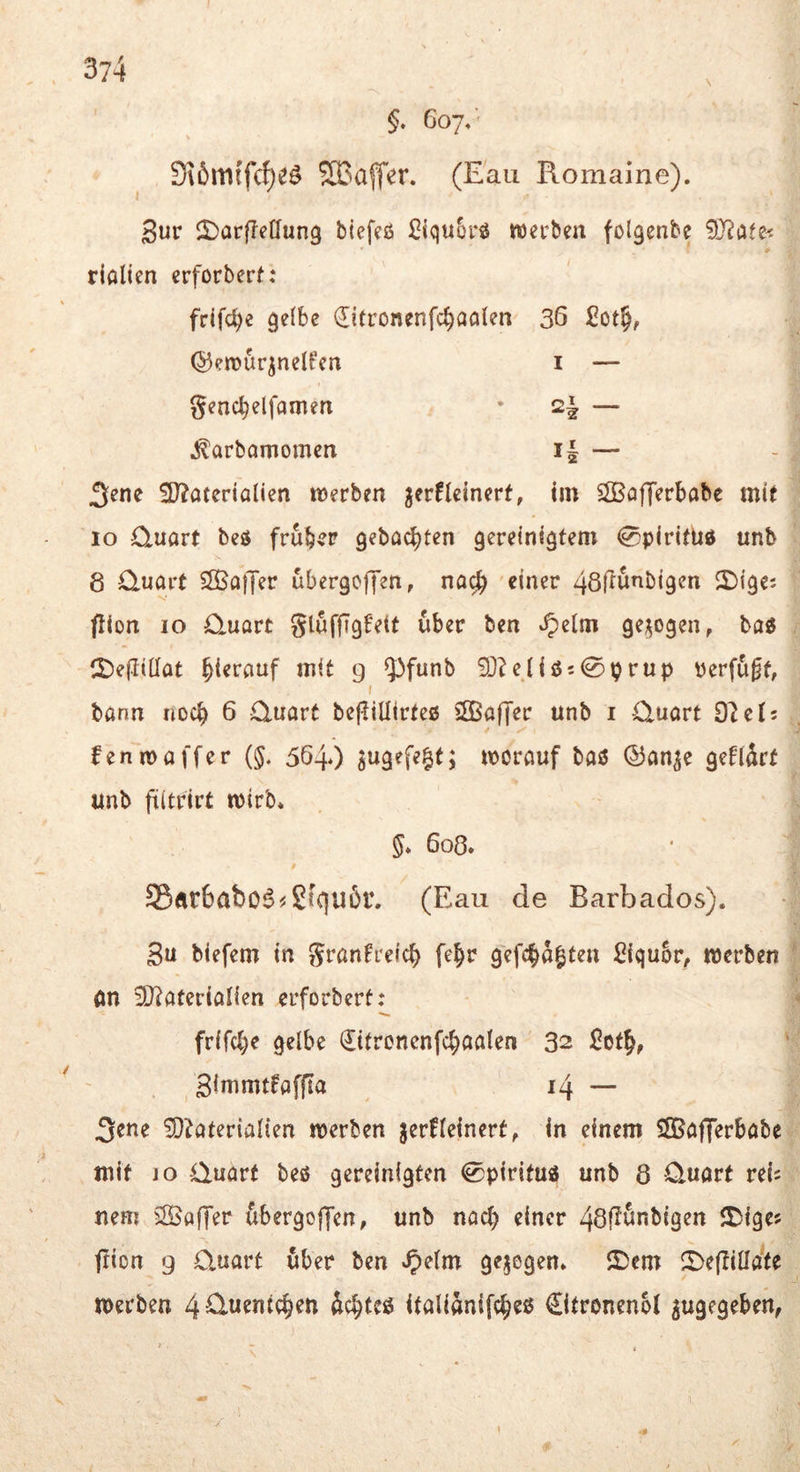 374
§. 607.
Römisches Wasser. (Eau Romaine).
Zur Darstellung dieses Liquörs werden folgende Mate-
rialien erfordert:
frische gelbe Citronenschaalen 36 Loth,
Gewürznelken 1 —
Fenchelsamen 2½ —
Kardamomen 1½ —
Jene Materialien werden zerkleinert, im Wasserbade mit
10 Quart des früher gedachten gereinigtem Spiritus und
8 Quart Wasser übergossen, nach einer 48stündigen Dige-
stion 10 Quart Flüssigkeit über den Helm gezogen, das
Destillat hierauf mit 9 Pfund Melis-Syrup versüßt,
dann noch 6 Quart destillirtes Wasser und 1 Quart Nel-
kenwasser (§. 564.) zugesetzt; worauf das Ganze geklärt
und filtrirt wird.
§. 608.
Barbados-Liquör. (Eau de Barbados).
Zu diesem in Frankreich sehr geschäßten Liquör, werden
an Materialien erfordert:
frische gelbe Citronenschaalen 32 Loth,
Zimmtkassia 14 —
Jene Materialien werden zerkleinert, in einem Wasserbade
mit 10 Quart des gereinigten Spiritus und 8 Quart rei-
nem Wasser übergossen, und nach einer 48stündigen Dige-
stion 9 Quart über den Helm gezogen. Dem Destillate
werden 4 Quentchen ächtes italiänisches Citronenöl zugegeben,